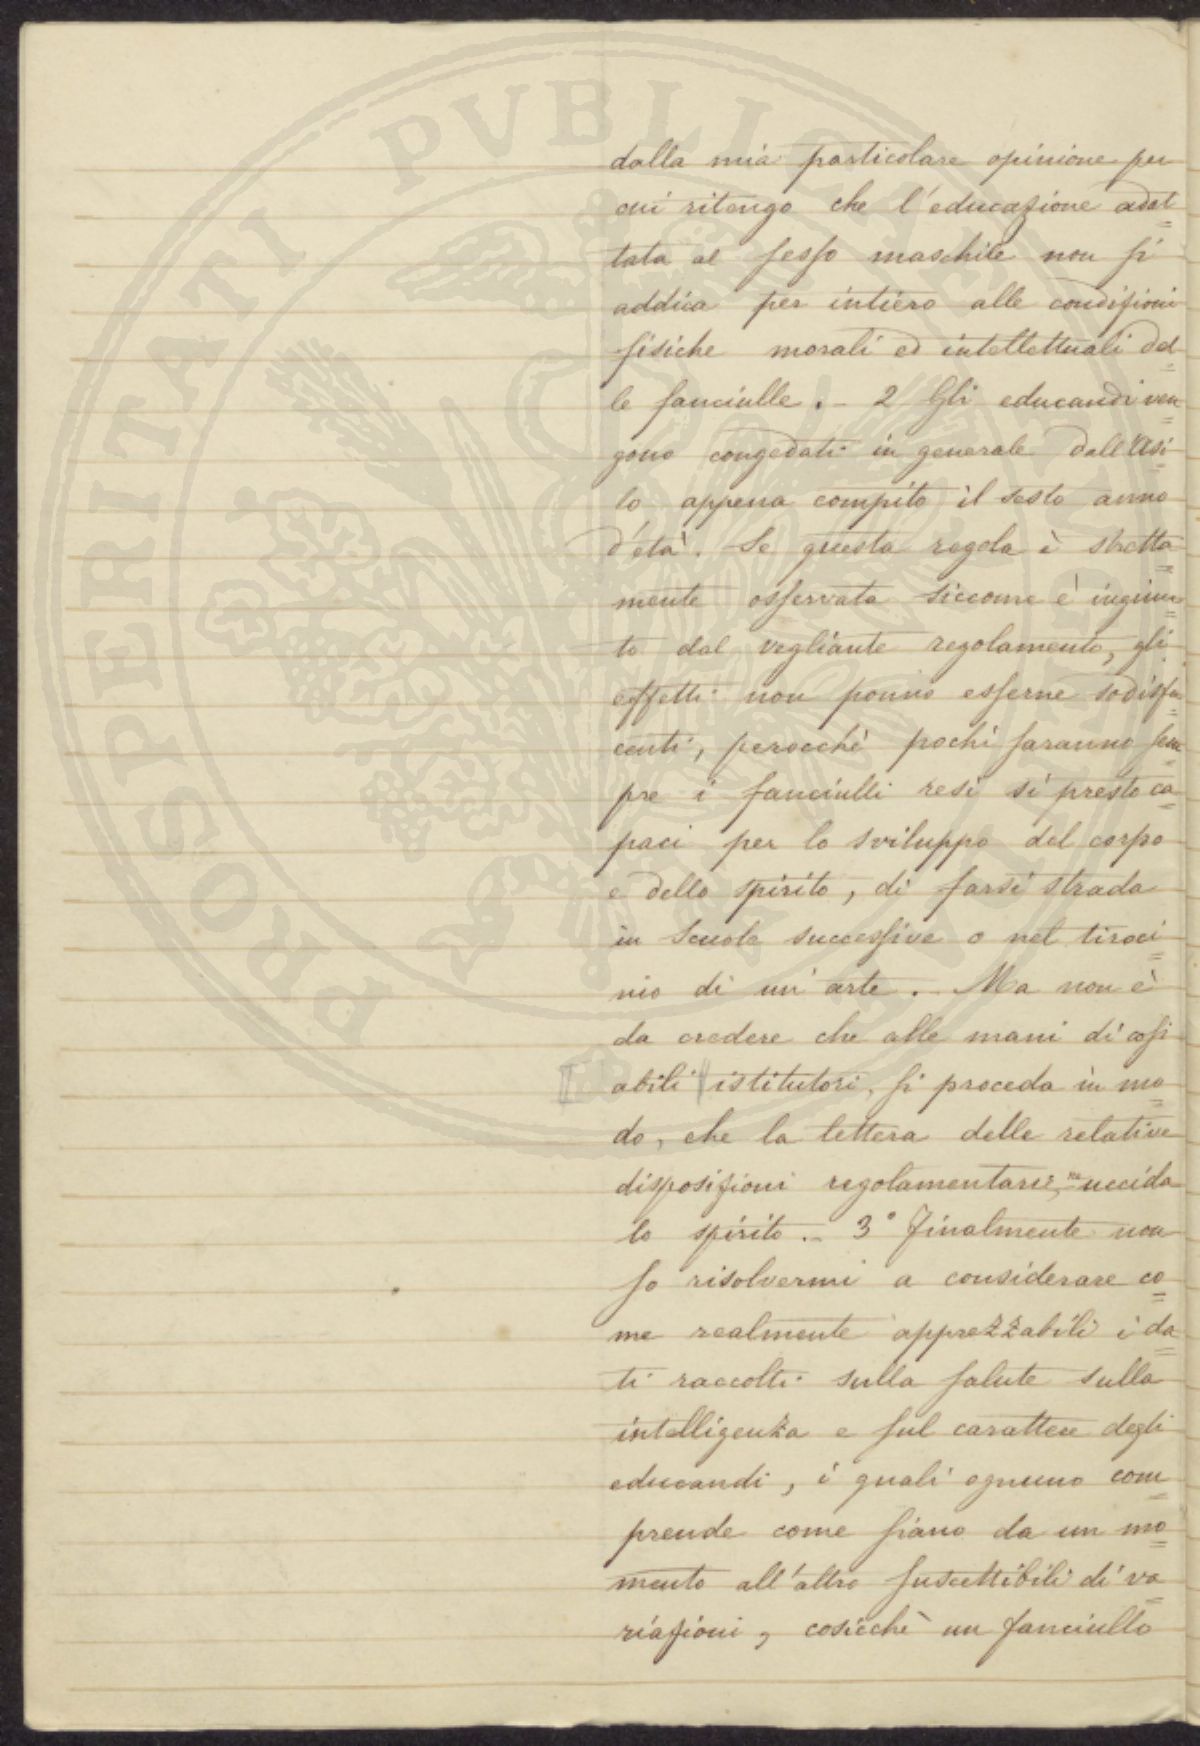 dalla mia particolare opinione per
cui ritengo che l'educazione adat=
tata al sesso maschile non si
addica per intiero alle condizioni
fisiche morali ed intellettuali del=
le fanciulle. - 2 Gli educandi ven
gono congedati in generale dall'Asi=
lo appena compito il sesto anno
d'età. Se questa regola è stretta=
mente osservata siccome è ingiun=
to dal vegliante regolamento, gli
effetti non ponno esserne sodisfa=
centi, perocchè pochi saranno sem=
pre i fanciulli resi sì presto ca=
paci per lo sviluppo del corpo
e dello spirito, di farsi strada
in Scuole successive o nel tiroci=
nio di un'arte. - Ma non è
da credere che alle mani di così
abili istitutori, si proceda in mo=
do, che la lettera delle relative
disposizioni regolamentarie, ne uccida
lo spirito. - 3° Finalmente non
so risolvermi a considerare co=
me realmente apprezzabili i da=
ti raccolti sulla salute sulla
intelligenza e sul carattere degli
educandi, i quali ognuno com=
prende come siano da un mo=
mento all'altro suscettibili di va=
riazioni, cosicchè un fanciullo
PROSPERITATI PVBLICAE